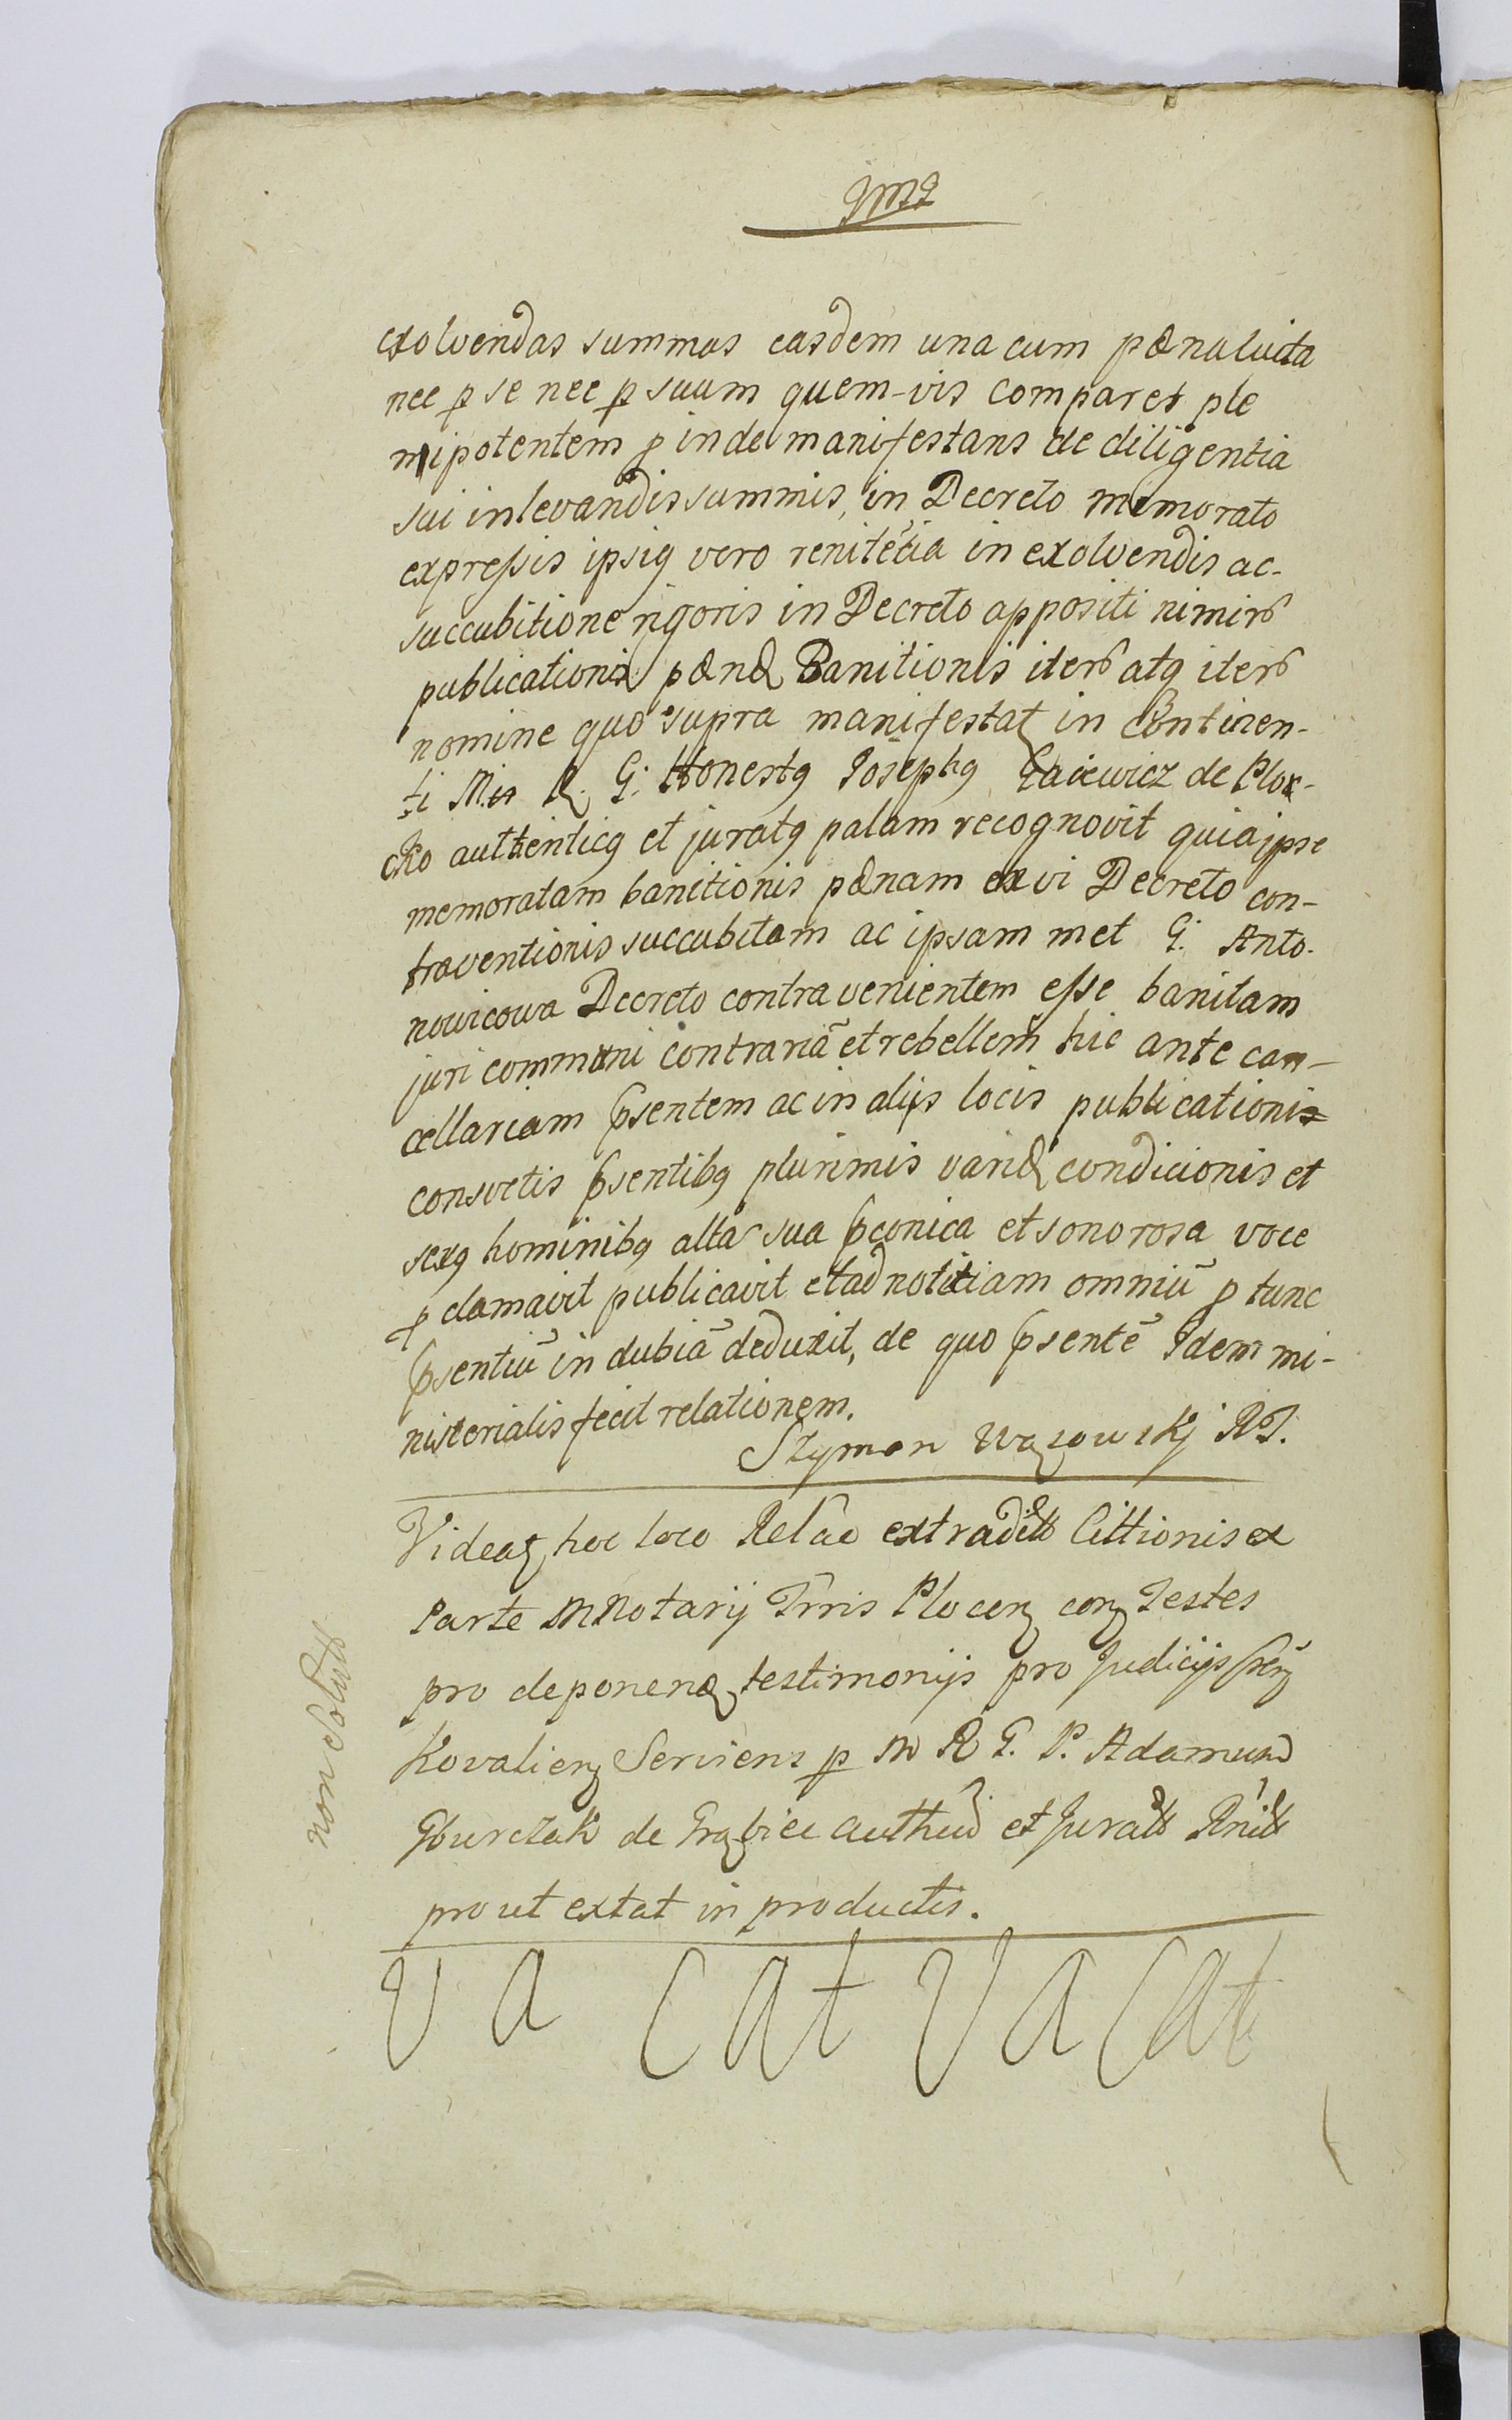 exolvendas summas easdem una cum pœna luita
nec p se nec p suum quem-vis comparet ple
nipotentem p inde manifestans de diligentia
sui in levandis summis, in Decreto memorato
expressis ipsiq vero renitētia in exolvendis ac
succubitione rigoris in Decreto appositi nimirō
publicationis pœnæ Banitionis iterō atq iterō
nomine quo supra manifestat in Continen-
ti Mis R. G. Honestq Josephq Gaiewicz de Plox-
cko authenticq et juratq palam recognovit quia jpse
memoratam banitionis pœnam ex vi Decreto con-
traventionis succubitam ac ipsam met G. Anto-
nowicowa Decreto contra venientem esse banitam
juri communi contrariā et rebellem hic ante can-
cellariam psentem ac in alijs locis publicationis
consvetis psentibq plurimis variæ condicionis et
sexq hominibq alta sua pconica et sonorosa voce
p clamavit publicavit et ad notitiam omniū p tunc
psentiū in dubiā deduxit, de quo psentē Idem mi-
nisterialis fecit relationem.
Szymon Wązowskj RT.
Videat hoc loco Relāo extradit Cittionis ex
Parte M Notarij Trris Plocen con Testes
pro deponen testimonijs pro Judicijs
Kovalien Serviens p M R G. P. Adamum
Gburczak de Grąbiec authen et Jurat
prout extat in productis.
va cat vacat
non Solut